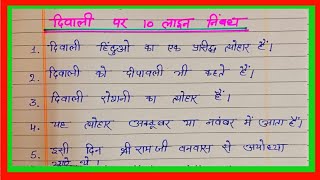 दिवाली पर 10 लाइन निबंध
1. दिवाली हिंदुओ का एक प्रसिद्ध त्योहार हैं।
2. दिवाली को दीपावली भी कहते हैं।
3. दिवाली रोशनी का त्योहार हैं।
4. यह त्योहार अक्टूबर या नवंबर में आता हैं।
5. इसी दिन श्री राम जी वनवास से अयोध्या
आये थे।